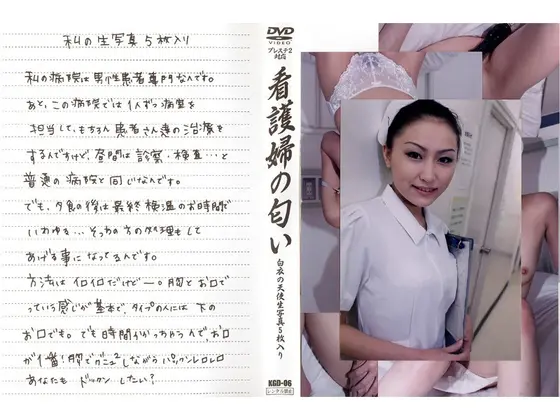 私の生写真5枚入り
私の病院は男性患者専門なんです。
あと、この病院では1人ずつ病室を
担当して、もちろん患者さん達の治療を
するんですけど、昼間は診察・検査…と
普通の病院と同じなんです。
でも、夕食の後は最終検温のお時間で
いわゆる…そっちの方の処理もして
あげる事になってるんです。
方法はイロイロだけど一。胸とお口で
っていう感じが基本で、タイプの人には下の
お口でも。でも時間かかっちゃうんで、お口
が1番!胸でグニュしながらパックンレロレロ
あなたもドックンしたい?
DVD
VIDEO
プレステ2
対応
看護婦の匂い
白衣の天使生写真5枚入り
KGD-06
レンタル禁止